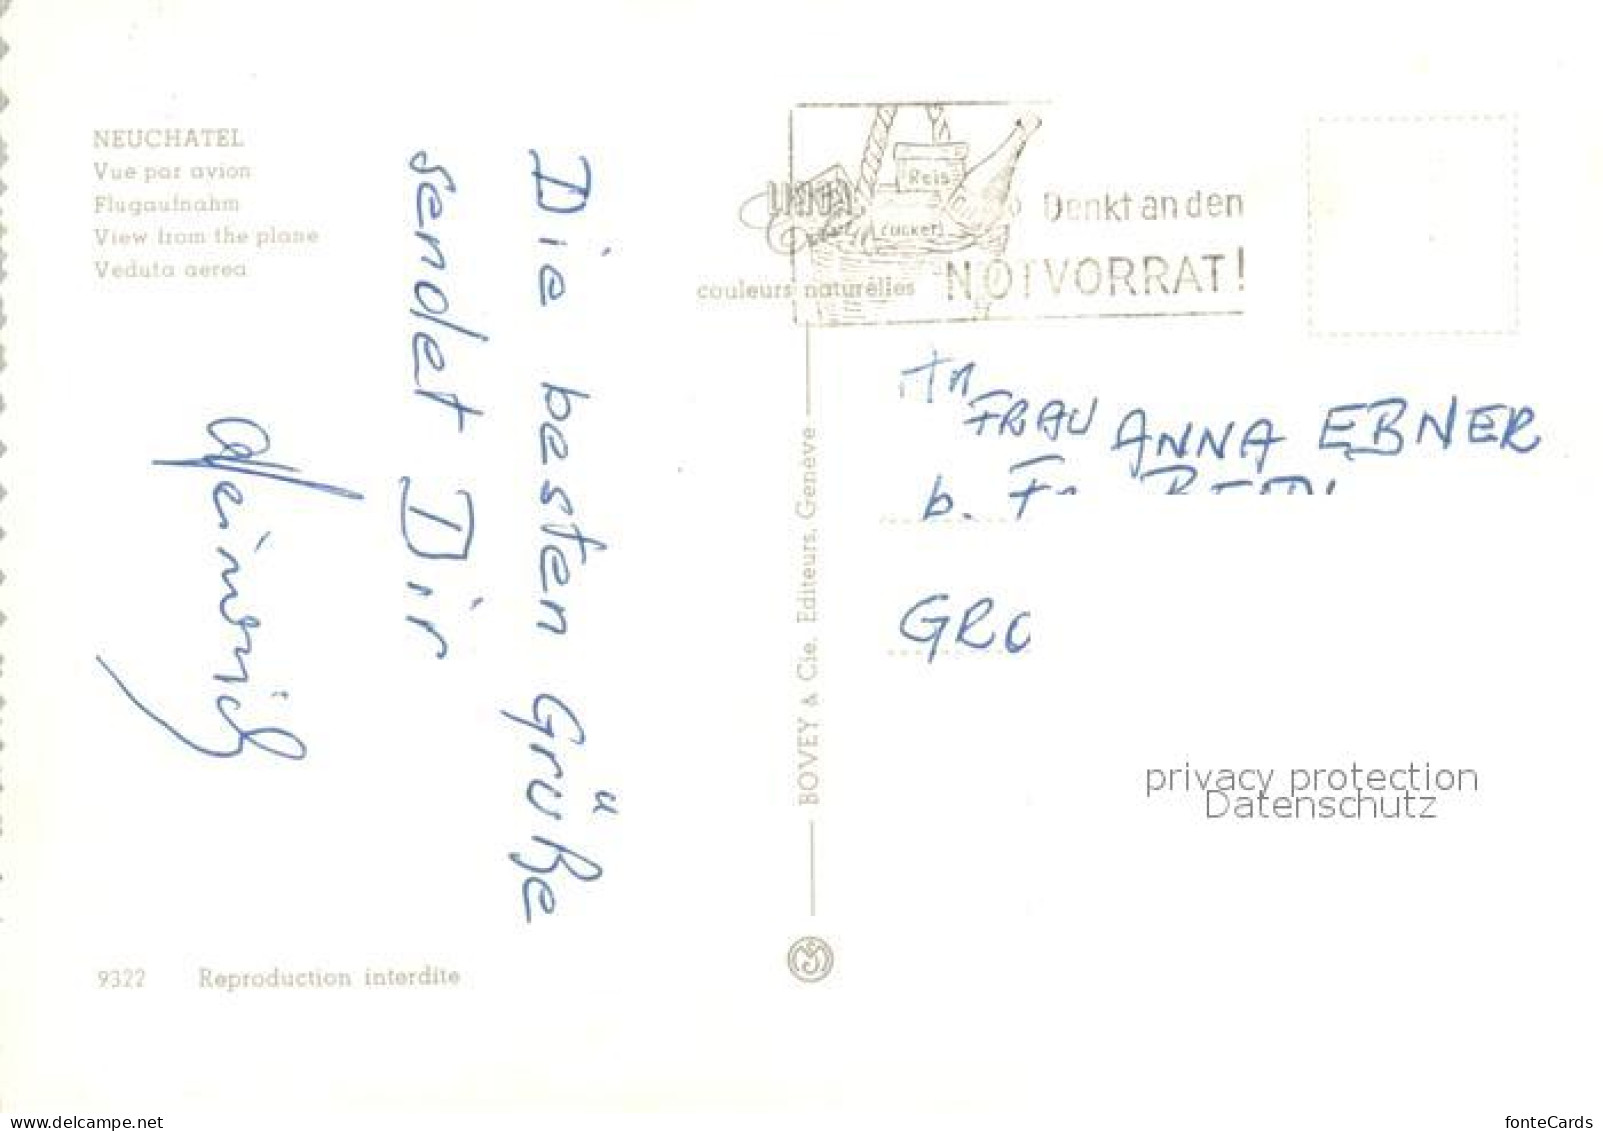 NEUCHATEL
Vue par avion
Flugaufnahm
View from the plane
Veduta aerea
Die besten Grüße
sendet Dir
Heinrich
9322 Reproduction interdite
BOVEY & Cie. Editeurs, Genève
couleurs naturelles
Reis
Denkt an den
NOTVORRAT!
An
FRAU ANNA EBNER
b.
privacy protection
Datenschutz
www.delcampe.net
fonteCards